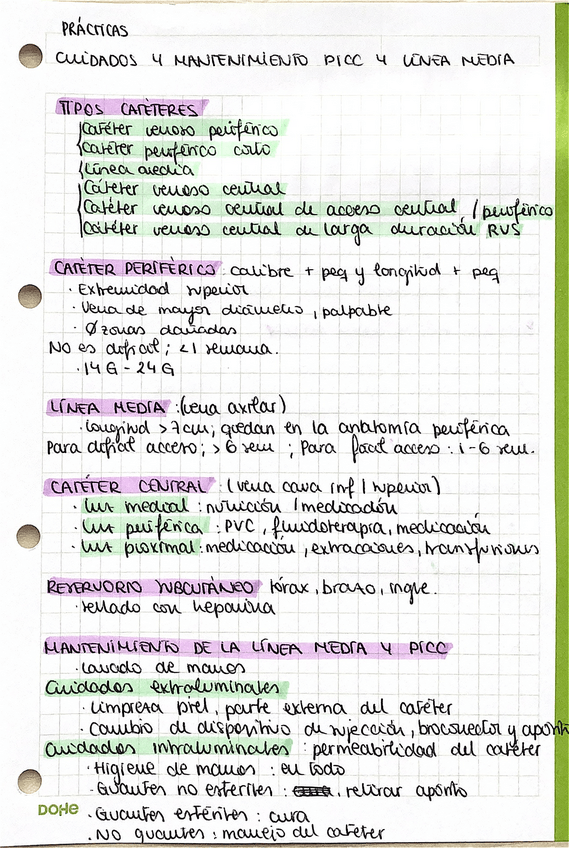 PRÁCTICAS
CUIDADOS Y MANTENIMIENTO PICC Y LÍNEA MEDIA
TIPOS CATÉTERES
Catéter venoso periférico
Catéter periférico corto
Línea media
Catéter venoso central
Catéter venoso central de acceso central / periférico
Catéter venoso central de larga duración RVS
CATÉTER PERIFÉRICO: calibre + peq y longitud + peq
· Extremidad superior
· Vena de mayor diámetro, palpable
· Ø zonas dañadas
No es difícil; <1 semana.
· 14 G - 24 G
LÍNEA MEDIA: (vena axilar)
· Longitud >7cm; quedan en la anatomía periférica
Para difícil acceso; >6 sem ; Para fácil acceso: 1-6 sem.
CATÉTER CENTRAL: (vena cava inf / superior)
· Luz medial: nutrición / medicación
· Luz periférica: PVC, fluidoterapia, medicación
· Luz proximal: medicación, extracciones, transfusiones
RESERVORIO SUBCUTÁNEO tórax, brazo, ingle.
· sellado con heparina
MANTENIMIENTO DE LA LÍNEA MEDIA Y PICC
· Lavado de manos
Cuidados extraluminales
· Limpieza piel, parte externa del catéter
· Cambio de dispositivo de sujección, bioconector y apósito
Cuidados intraluminales: permeabilidad del catéter
· Higiene de manos: en todo
· Guantes no estériles: , retirar apósito
· Guantes estériles: cura
· No guantes: manejo del catéter
DOHE